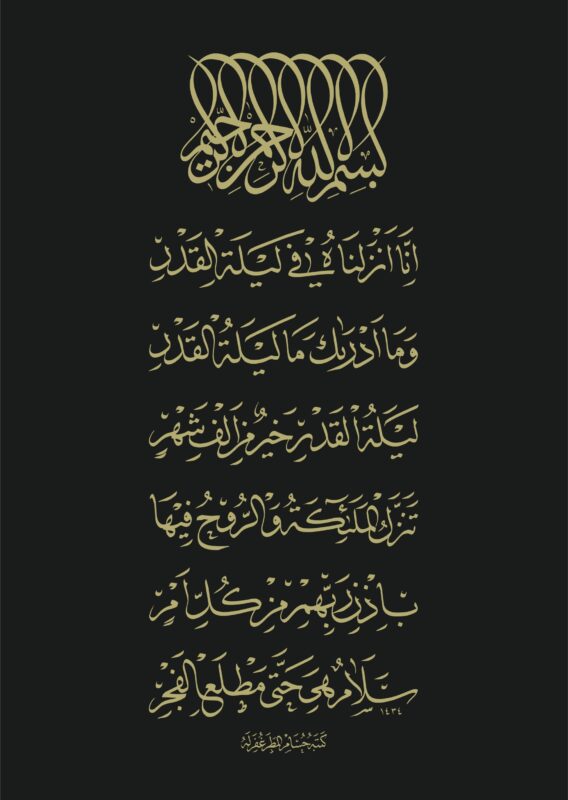 بسم الله الرحمن الرحيم
اِنَّا اَنْزَلْنَاهُ فِي لَيْلَةِ الْقَدْرِ
وَمَا اَدْرٰيكَ مَا لَيْلَةُ الْقَدْرِ
لَيْلَةُ الْقَدْرِ خَيْرٌ مِنْ اَلْفِ شَهْرٍ
تَنَزَّلُ الْمَلٰٓئِكَةُ وَالرُّوحُ فِيهَا
بِاِذْنِ رَبِّهِمْ مِنْ كُلِّ اَمْرٍ
سَلَامٌ هِيَ حَتّٰى مَطْلَعِ الْفَجْرِ
١٤٣٤
كتبه حسام المطر غفر له